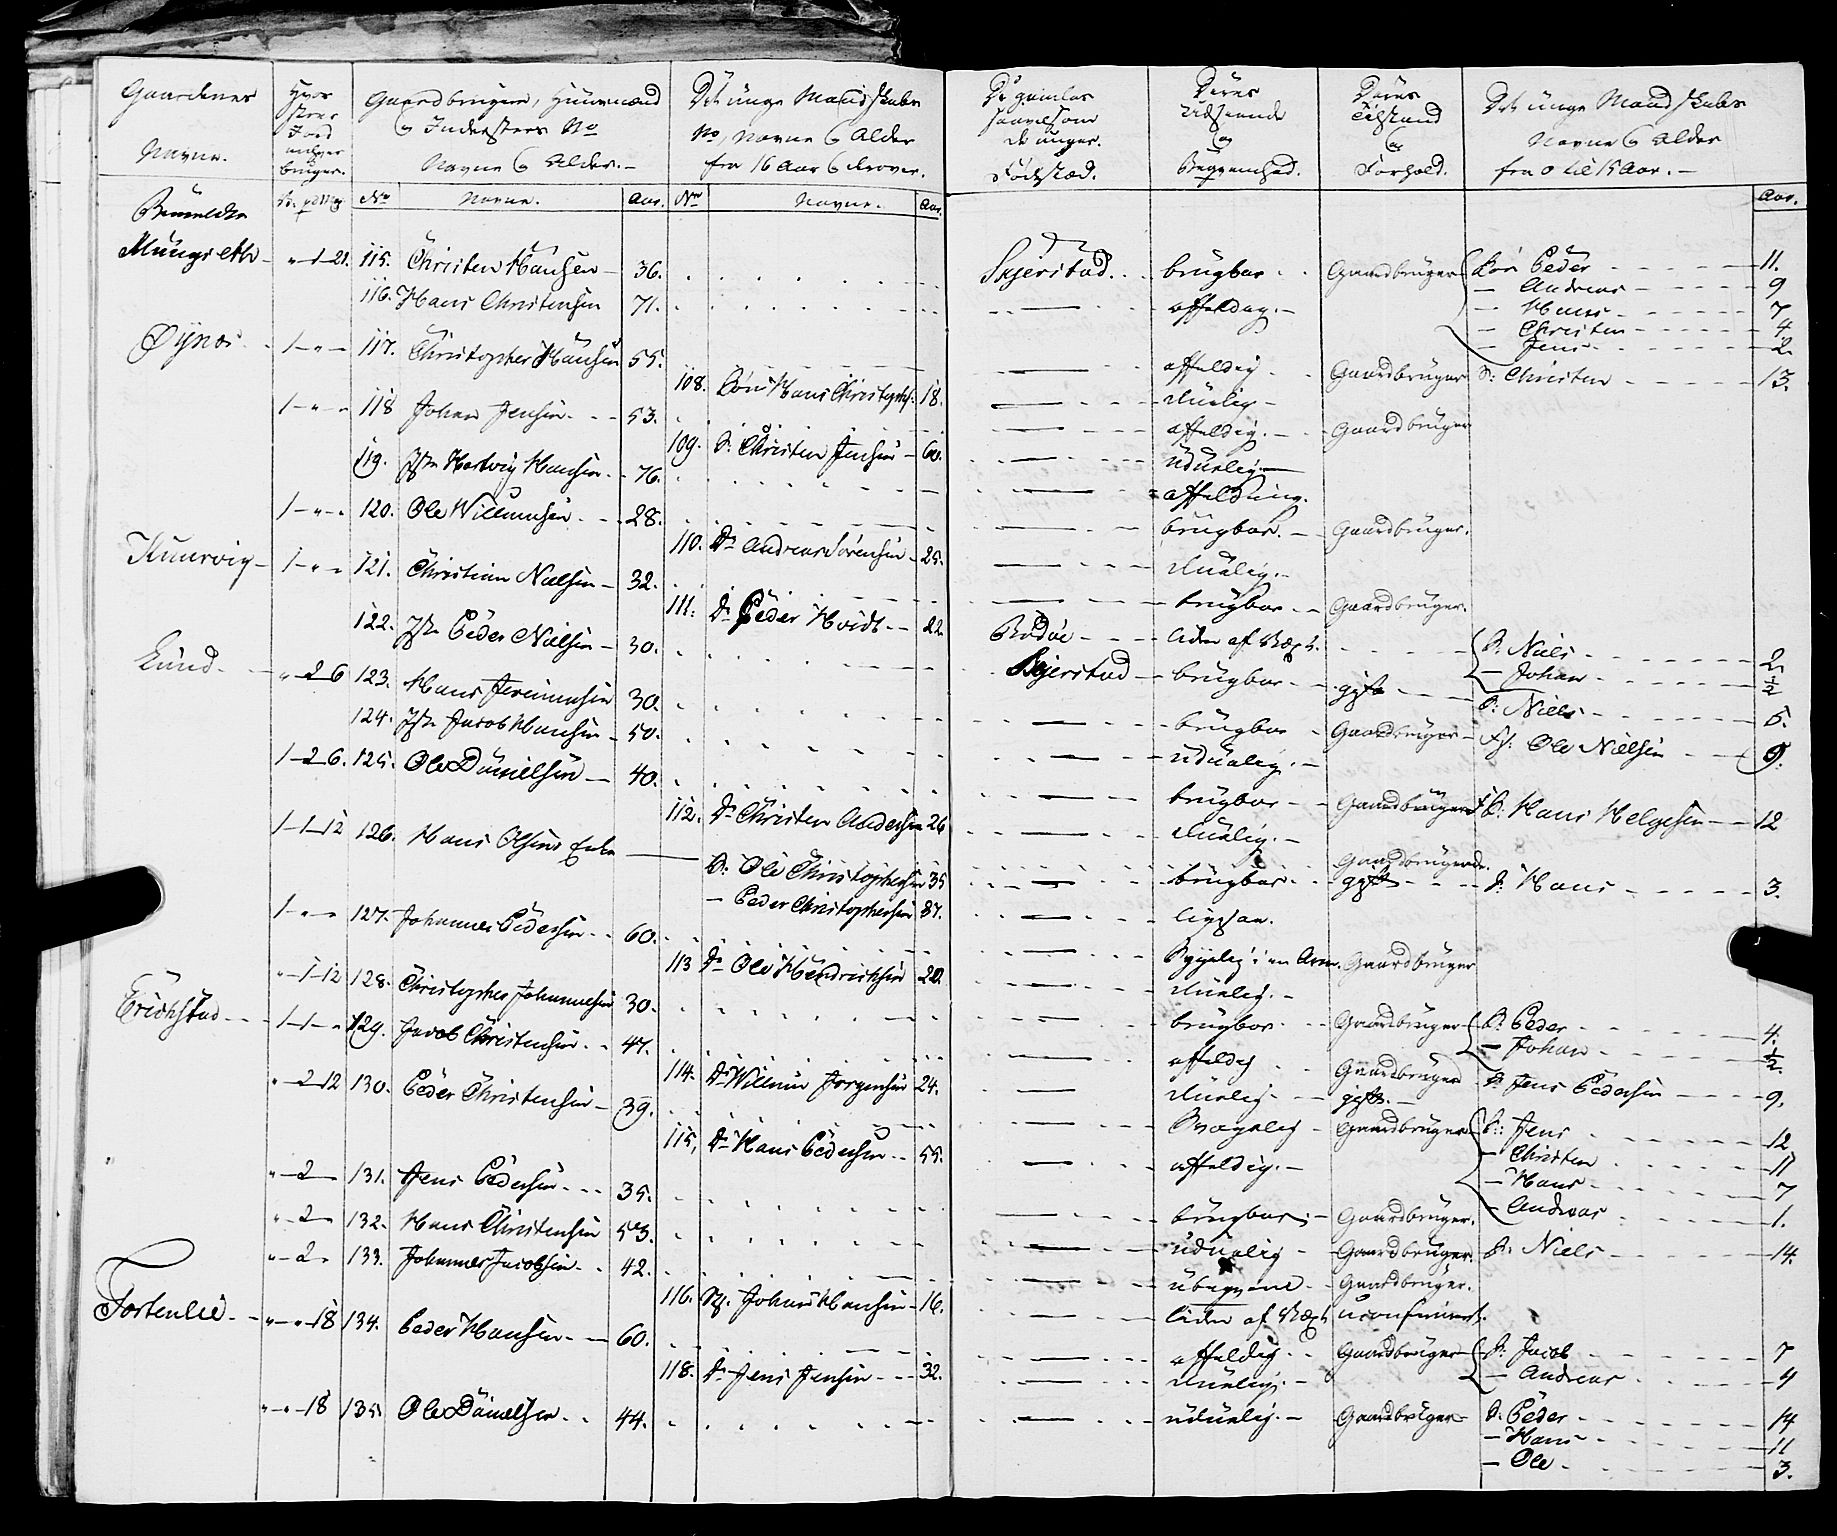 Gaardenes Navne.
Hvor stor Jord enhver bruger.
Gaardbrugere, Huusmænd & Inderster No Navne & Alder.
Det unge Mandskabs No, Navne & Alder fra 16 Aar & derover.
De gamles saavelsom de unges Fødested.
Deres Udseende og Beqvemhed.
Deres Tilstand og Forhold.
Det unge Mandskabs Navne & Alder fra 0 til 15 Aar.
No Navne. Aar. No Navne. Aar. Aar.
- "-1-21. 115. Christen Hansen - 36. Skjerstad. brugbar Gaardbruger Søn Peder 11.
- Andreas 9
116. Hans Christensen 71. affeldig. - Hans 7
- Christen 4
- Jens 2.
Øynes 1-"- 117. Christopher Hansen 55. affeldig Gaardbruger S: Christen 13.
108. Søn Hans Christophs. 18. duelig
1-"- 118 Johan Jensen 53. affeldig. Gaardbruger
109. S: Christen Jensen 60. uduelig
119. Hartvig Hansen 76. affeldig.
1-"- 120. Ole Willumsen 28. brugbar. Gaardbruger.
110. Dr Andreas Sørensen 25. duelig.
1-"- 121. Christian Nielsen 32. brugbar Gaardbruger.
111. Dr Peder Hvidt 22 Bodøe liden af Væxt.
122. Peder Nielsen 30. Skjerstad brugbar gift S: Niels 2
- Johan ½
Lund "-2-6 123. Hans Jeremiasen 30. brugbar Gaardbruger S: Niels 5.
124. Jacob Hansen 50. uduelig. Ole Nielsen 9.
1-2-6. 125. Ole Danielsen 40. brugbar Gaardbruger Hans Helgesen 12
112. Dr Christen Andersen 26 duelig.
1-1-12 126. Hans Olsens Enke Gaardbrugersk.
S: Ole Christophersen 35 brugbar gift S. Hans 3.
- Peder Christophersen 37.
1-"- 127. Johannes Pedersen 60. Svagelig i en Arm. Gaardbruger
113 Dr Ole Hendrichsen 20. duelig.
"-1-12 128. Christopher Johannesen 30. brugbar Gaardbruger S: Peder 4.
- Johan ½.
Erichstad 1-1- 129. Jacob Christensen 47. affeldig Gaardbruger S. Jens Pedersen 9.
114. Dr Willum Jørgensen 24. duelig gift.
"-2-12 130. Peder Christensen 39. Svagelig Gaardbruger S: Jens 12
- Christen 11
- Hans 7
- Andreas 1.
115. Dr Hans Pedersen 55. affeldig.
"-2- 131. Jens Pedersen 35. brugbar Gaardbruger.
"-2- 132. Hans Christensen 53. uduelig Gaardbruger. S: Niels 14.
"-2- 133. Johannes Jacobsen 42. ubeqvem Gaardbruger.
116. Johan Hansen 16. liden af Væxt uconfirmert.
"-"-18 134. Peder Hansen 60. affeldig Gaardbruger S. Jacob 7
- Andreas 4
118. Dr Jens Jensen 32. duelig.
"-"-18 135 Ole Danielsen 44. uduelig. Gaardbruger S: Peder 14
- Hans 11
- Ole 3.